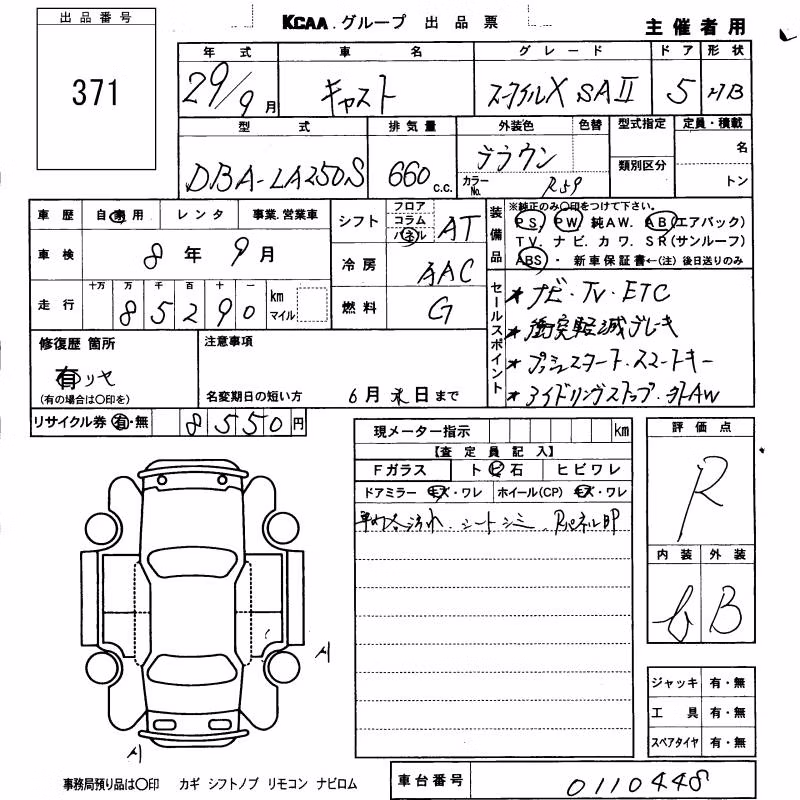 出品番号
371
KCAA.グループ 出品票
主催者用
年式 車名 グレード ドア 形状
29/9月 キャスト スタイルX SAⅡ 5 HB
型式 排気量 外装色 色替 型式指定 定員・積載
DBA-LA250S 660 c.c. ブラウン 名
カラーNo. R59 類別区分 トン
車歴 自家用 レンタ 事業.営業車
車検 8年9月
走行 十万 万 千 百 十 一 km マイル
8 5 2 9 0
シフト フロア コラム パネル AT
冷房 AAC
燃料 G
装備品
※純正のみ○印をつけて下さい。
PS. PW. 純AW. AB(エアバック)
TV. ナビ. カワ. SR(サンルーフ)
ABS・ 新車保証書←(注)後日送りのみ
セールスポイント
★ナビ・TV・ETC
★衝突軽減ブレーキ
★プッシュスタート・スマートキー
★アイドリングストップ・外AW
修復歴 箇所
有リヤ
(有の場合は○印を)
注意事項
名変期日の短い方 6月末日まで
リサイクル券 有・無 8550円
現メーター指示 km
【査定員記入】
Fガラス トビ石 ヒビワレ
ドアミラー キズ・ワレ ホイール(CP) キズ・ワレ
シートシミ. Rパネル凹P
評価点
R
内装 外装
b B
ジャッキ 有・無
工具 有・無
スペアタイヤ 有・無
事務局預り品は○印 カギ シフトノブ リモコン ナビロム
車台番号 0110448